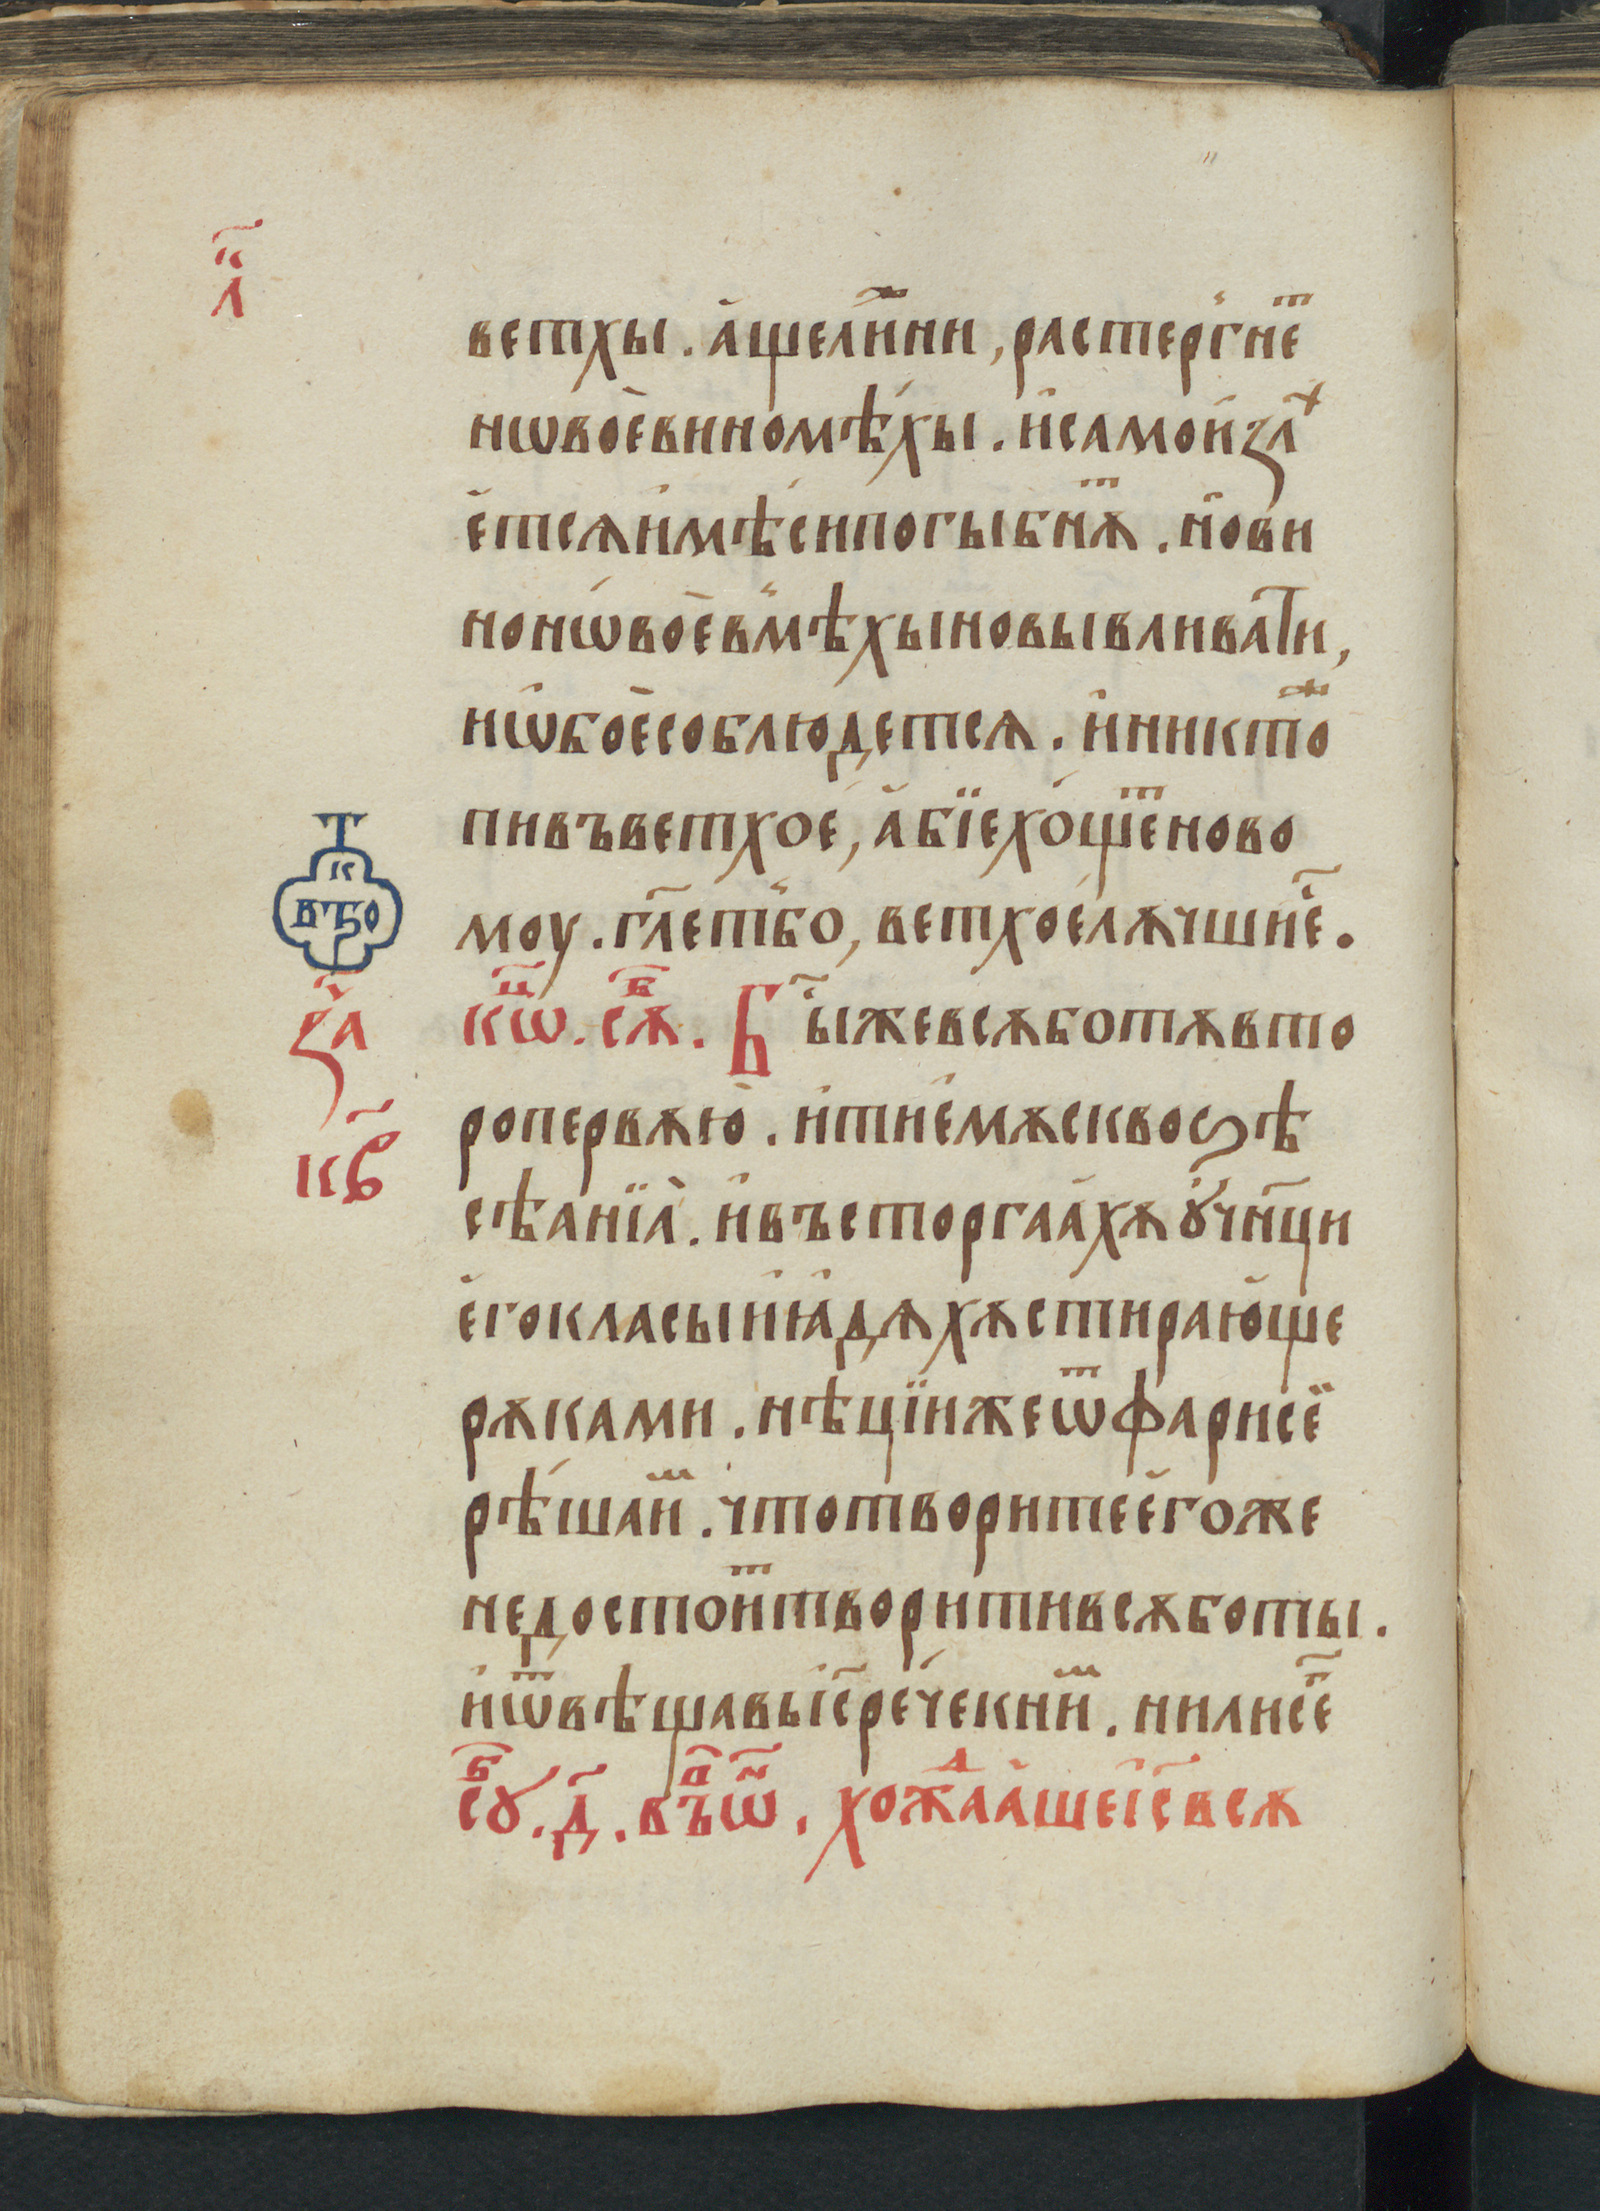 л҃
ветхы . а҆щелиⷤнии , растерⸯгнеⷮ
нѡвоѐвиномѣ́хы . и҆самои҆злⷯ
е҆тсѧи҆мѣсипогыбнѫⷮ . н҆ови
нонѡ́воѐвⸯмѣхыновывливатⷤи ,
и҆ѡ҆боѐсоблюдетсѧ . и҆никтⷤо
пивъветхоѐ , а҆бїехо́щеⷮново
моу . гл҃етⸯбо , ветхоѐлѫчшиеⷭ҇ .
коⷰ҇ . сѫⷠ҇ . Быⷭ҇жевсѫботѫвто
ропервѫю̀ . и҆тиѐмѫсквоѕѣ
сѣанїа̀ . и҆въсторгаа҆хѫ ᲂу҆чн҃ци
е҆гокласыи҆ꙗ҆дѧхѫстирающе
рѫками . нѣцїижеѿфарисеⷪ҇
рѣ́шаиⷨ . чтотворитеѐгоже
недостоиⷮтворитивсѫботы .
и҆ѿвѣщавъі҃сречекниⷨ . нилисеⷢ҇
сꙋⷠ҇ . д҃ . въⷫ҇ѿⷩ҇ . хожⷣаа҆шеі҃свсѫ
іс
въѕо
за҃
к҃в